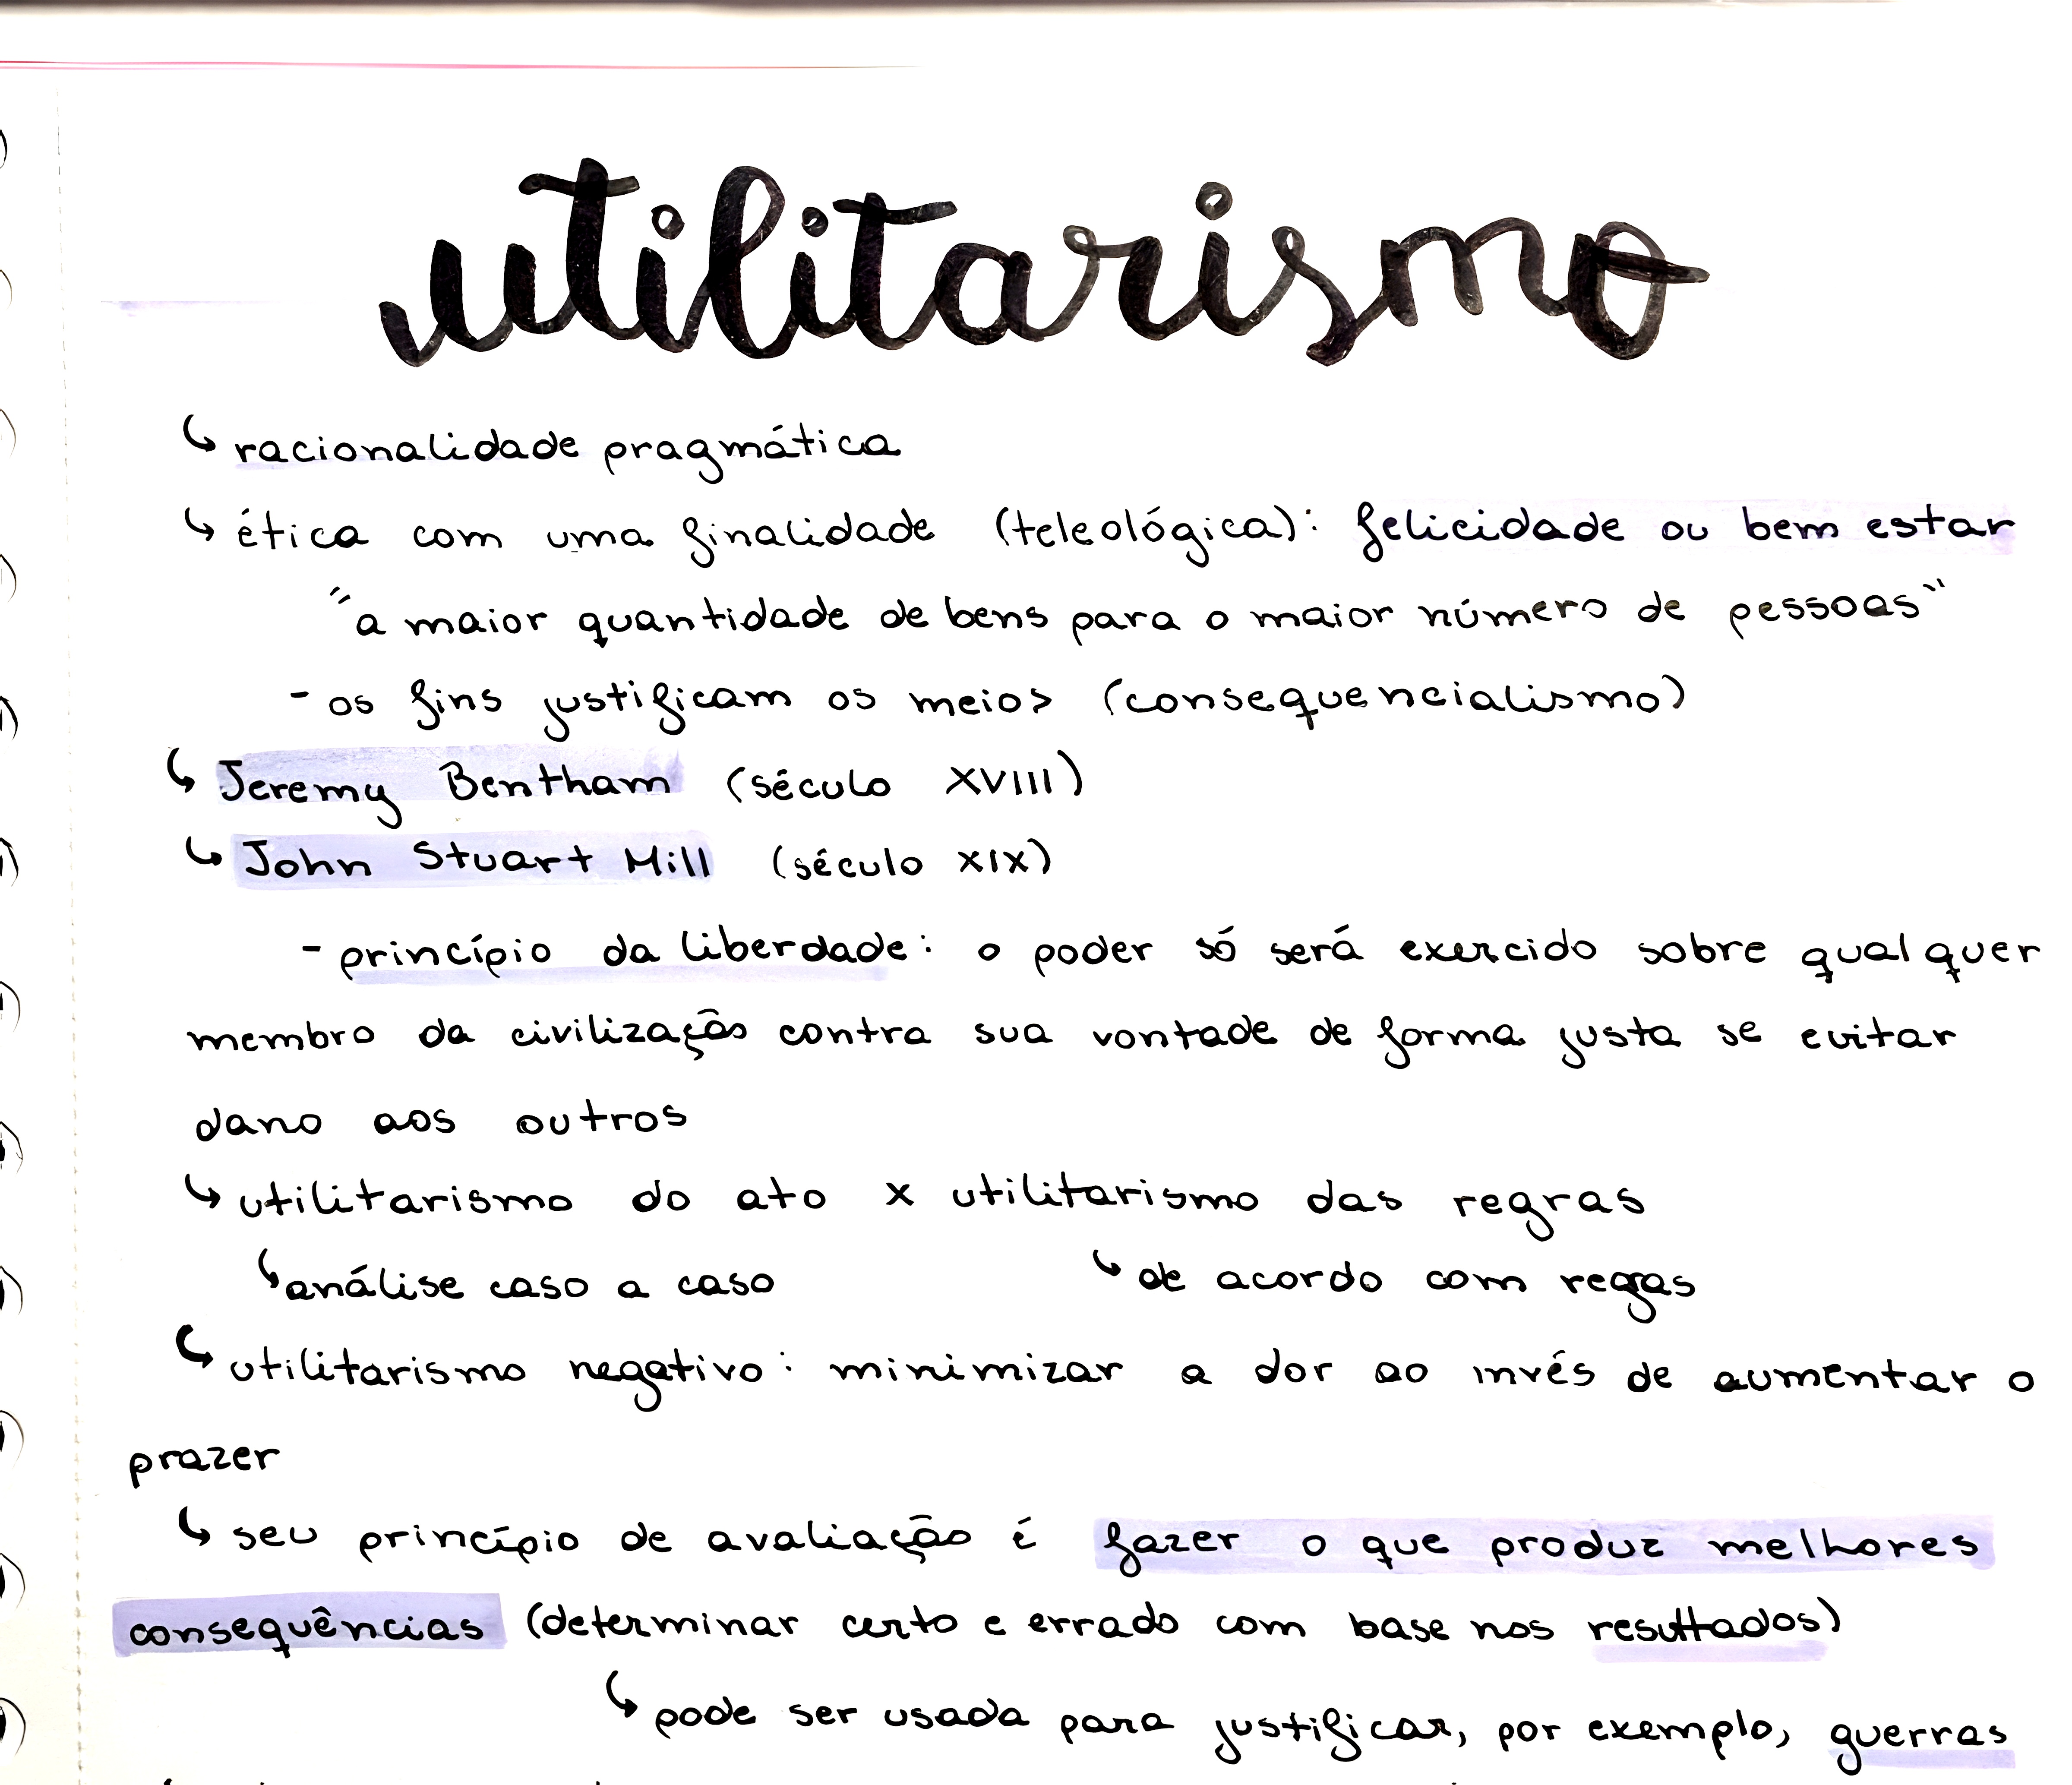 utilitarismo
↳ racionalidade pragmática
↳ ética com uma finalidade (teleológica): felicidade ou bem estar
"a maior quantidade de bens para o maior número de pessoas"
- os fins justificam os meios (consequencialismo)
↳ Jeremy Bentham (século XVIII)
↳ John Stuart Mill (século XIX)
- princípio da liberdade: o poder só será exercido sobre qualquer
membro da civilização contra sua vontade de forma justa se evitar
dano aos outros
↳ utilitarismo do ato x utilitarismo das regras
↳ análise caso a caso ↳ de acordo com regras
↳ utilitarismo negativo: minimizar a dor ao invés de aumentar o
prazer
↳ seu princípio de avaliação é fazer o que produz melhores
consequências (determinar certo e errado com base nos resultados)
↳ pode ser usada para justificar, por exemplo, guerras